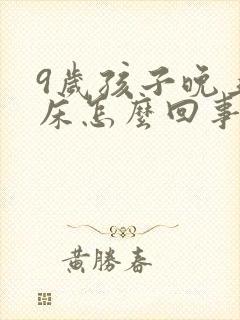 9歲孩子晚上
床怎麼回事
黃勝春